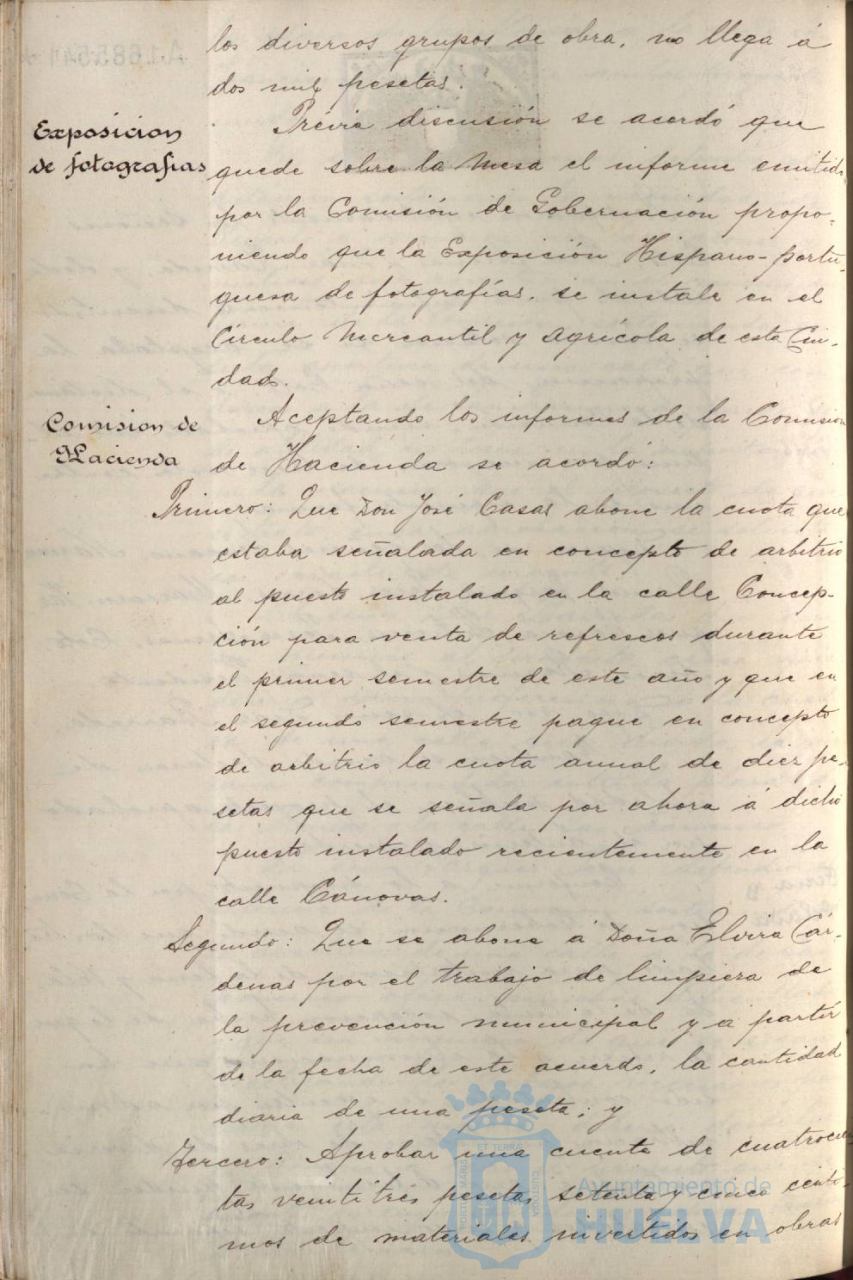 los diversos grupos de obra, no llega á
dos mil pesetas.
Exposicion
de fotografias
Prévia discusión se acordó que
quede sobre la Mesa el informe emitido
por la Comisión de Gobernación propo-
niendo que la Exposición Hispano-portu-
guesa de fotografías, se instale en el
Círculo Mercantil y Agrícola de esta Ciu-
dad.
Comision de
Hacienda
Aceptando los informes de la Comision
de Hacienda se acordó:
Primero: Que Don José Casas abone la cuota que
estaba señalada en concepto de arbitrio
al puesto instalado en la calle Concep-
ción para venta de refrescos durante
el primer semestre de este año y que en
el segundo semestre pague en concepto
de arbitrio la cuota anual de diez pe-
setas que se señala por ahora á dicho
puesto instalado recientemente en la
calle Cánovas.
Segundo: Que se abone á Doña Elvira Cár-
denas por el trabajo de limpieza de
la prevención municipal y a partir
de la fecha de este acuerdo, la cantidad
diaria de una peseta; y
Tercero: Aprobar una cuenta de cuatrocien
tas veintitrés pesetas, setenta y cinco cénti-
mos de materiales invertidos en obras
Ayuntamiento de
HUELVA